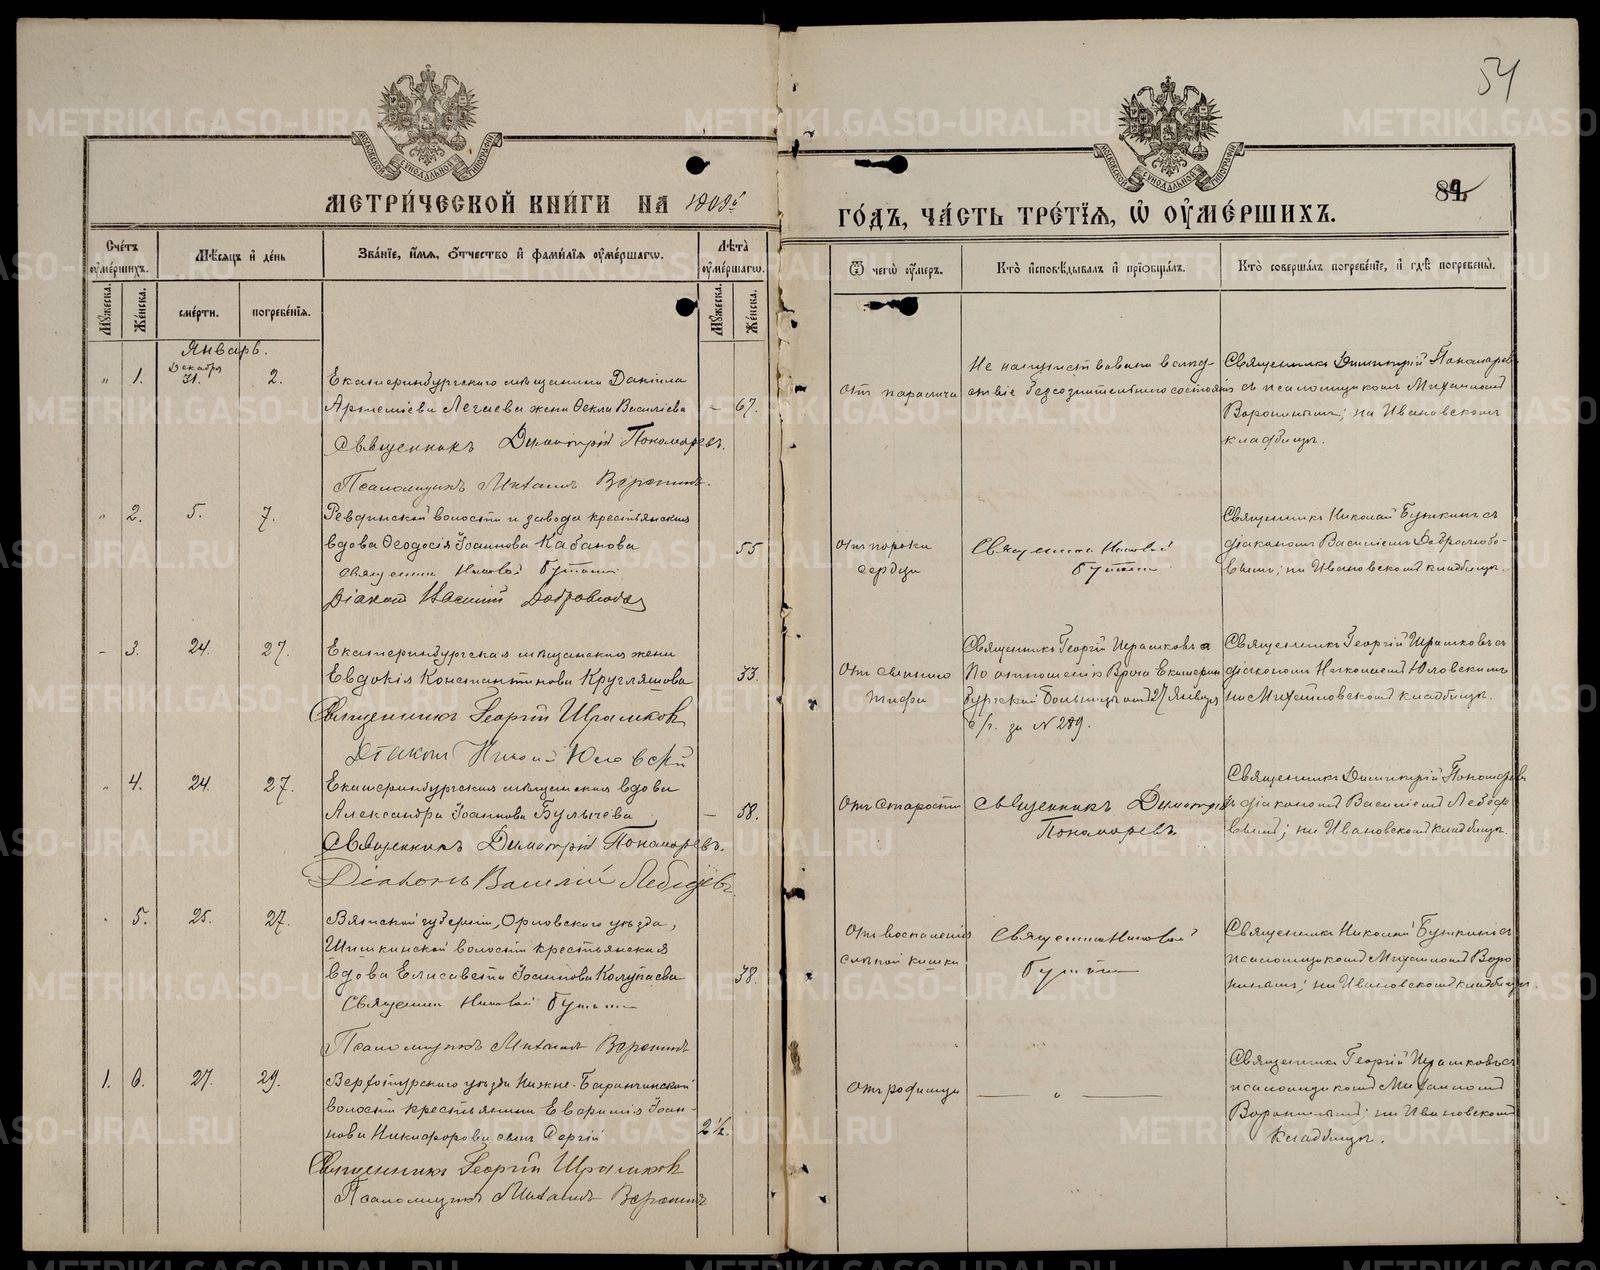 54
МЕТРИ́ЧЕСКОЙ КНИ́ГИ НА
ГО́ДЪ, ЧА́СТЬ ТРЕ́ТІѦ, Ѿ ОУМЕ́РШИХЪ.
Сче́тъ оуме́ршихъ.
Мѣ́сяцъ и де́нь
Зва́ніе, и́мѧ, о́тчество и фами́лїѧ оуме́ршагѡ.
Лѣта̀ оуме́ршагѡ.
Ѿ чегѡ̀ оу́меръ.
Кто̀ исповѣ́дывалъ и прїобща́лъ.
Кто̀ соверша́лъ погребе́нїе, и гдѣ̀ погребены̀.
Му́жеска.
Же́нска.
сме́рти.
погребе́нїя.
Му́жеска.
Же́нска.
Январь.
1.
Декабря 31.
2.
Екатеринбургскаго мѣщанина Даніила
Артеміева Легаева жена Ѳекла Василіева
67.
Священникъ Димитрій Пономаревъ.
Псаломщикъ Михаилъ Воронинъ.
Отъ паралича
Не напутствована вслѣд-
ствіе безсознательнаго состоянія
Священникъ Димитрій Пономаревъ
съ псаломщикомъ Михаиломъ
Воронинымъ; на Ивановскомъ
кладбищѣ.
2.
5.
7.
Ревдинской волости и завода крестьянская
вдова Ѳеодосія Іоаннова Кабанова
55
Священникъ Николай Буткинъ
Діаконъ Василій
Отъ порока
сердца
Священникъ Николай
Буткинъ
Священникъ Николай Буткинъ съ
діакономъ Василіемъ Добролюбо-
вымъ; на Ивановскомъ кладбищѣ.
3.
24.
27.
Екатеринбургская мѣщанская жена
Евдокія Константинова Кругляшова
33.
Священникъ Георгій Ирашковъ
Діаконъ Николай Юловскій
Отъ сыпного
тифа
Священникъ Георгій Ирашковъ
По отношенію Врача Екатерин
бургской больницы отъ 27 Января
с/г. за № 289.
Священникъ Георгій Ирашковъ съ
діакономъ Николаемъ Юловскимъ
на Михайловскомъ кладбищѣ.
4.
24.
27.
Екатеринбургская мѣщанская вдова
Александра Іоаннова Булычева
58.
Священникъ Димитрій Пономаревъ.
Діаконъ Василій Лебедевъ.
Отъ старости
Священникъ Димитрій
Пономаревъ
Священникъ Димитрій Пономаревъ
съ діакономъ Василіемъ Лебеде
вымъ; на Ивановскомъ кладбищѣ.
5.
25.
27.
Вятской губерніи, Орловскаго уѣзда,
Шишкинской волости крестьянская
вдова Елисавета Іоаннова Колупаева
38.
Священникъ Николай Буткинъ
Псаломщикъ Михаилъ Воронинъ
Отъ воспаленія
слѣпой кишки
Священникъ Николай
Буткинъ
Священникъ Николай Буткинъ съ
псаломщикомъ Михаиломъ Воро
нинымъ; на Ивановскомъ кладбищѣ.
1.
6.
27.
29.
Верхотурскаго уѣзда Нижне-Баранчинской
волости крестьянина Евфимія Іоан-
нова Никифорова сынъ Сергій
2½.
Священникъ Георгій Ирашковъ
Псаломщикъ Михаилъ Воронинъ
Отъ родимца
Священникъ Георгій Ирашковъ съ
псаломщикомъ Михаиломъ
Воронинымъ; на Ивановскомъ
кладбищѣ.
METRIKI.GASO-URAL.RU